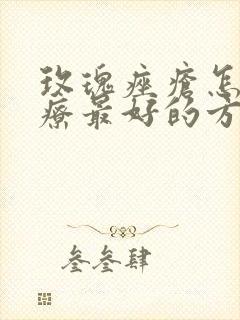 玫瑰痤疮怎
疗最好的方
叁叁肆